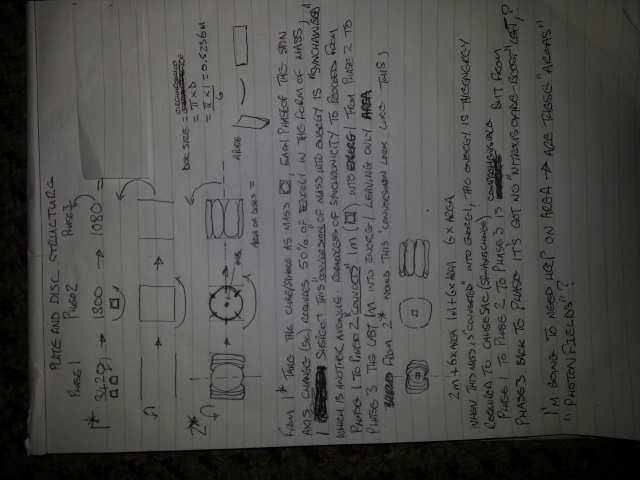 PLATE AND DISC STRUCTURE
PHASE 1 PHASE 2 PHASE 3
1* 3420 → 1800 → 1080 =
2*
DISC SIZE = CIRCUMFERENCE
= π × D
= π × 1 = 0.5236M
6
AREA OF DISCS =
FROM 1* TAKE THE CUBE/SPHERE AS MASS, EACH PHASE OF THE SPIN
AXIS CHANGE (SAC) REQUIRES 50% OF "ENERGY" IN THE FORM OF MASS,
I SUSPECT THIS CONVERSION OF MASS INTO ENERGY IS "SYNCHRONISED"
WHICH IS ANOTHER AVENUE. REGARDLESS OF SYNCHRONICITY TO PROCEED FROM
PHASE 1 TO PHASE 2 "CONVERTS" 1M INTO ENERGY FROM PHASE 2 TO
PHASE 3 THE LAST 1M INTO ENERGY LEAVING ONLY AREA
FROM 2* WOULD THIS "CONVERSION" LOOK LIKE THIS;
2M+6×AREA 1M+6×AREA 6×AREA
WHEN THIS MASS IS "CONVERTED" INTO ENERGY, THE ENERGY IS THE ENERGY
REQUIRED TO CAUSE SAC (SPIN AXIS CHANGE)
PHASE 1 TO PHASE 2 TO PHASE 3 IS BUT FROM
PHASE 3 BACK TO PHASE 1 IT'S GOT NO "NITROUS OXIDE-BOOST" LEFT,?
I'M GOING TO NEED HELP ON AREA → ARE THESE "AREAS"
"PHOTON FIELDS"?